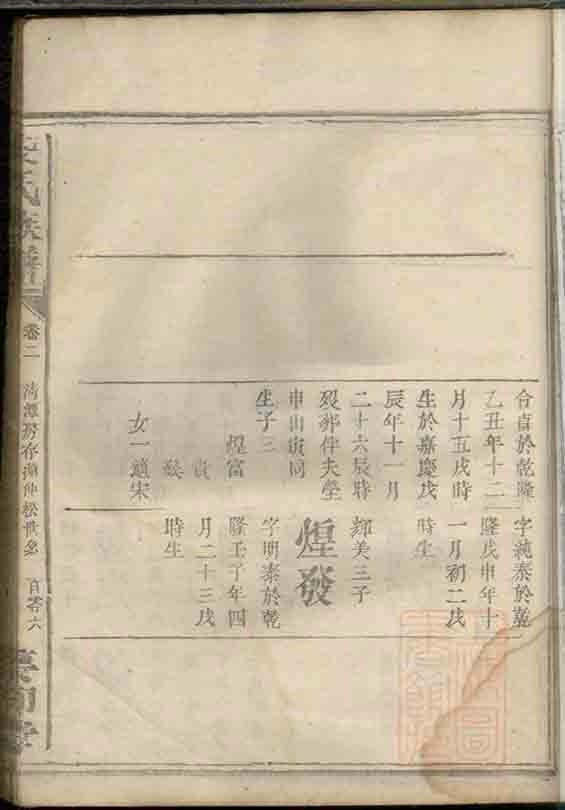 合貞於乾隆
乙丑年十二
月十五戌時
生於嘉慶戊
辰年十一月
二十六辰時
歿葬伴夫塋
申山寅同
生子三
煌富
煌貴
煌發
女一適宋
字純泰於嘉
隆戊申年十
一月初二戌
時生
輝美三子
煌發
字明泰於乾
隆壬子年四
月二十三戌
時生
氏族譜
卷二
清潭房存
仲松世系
百零六